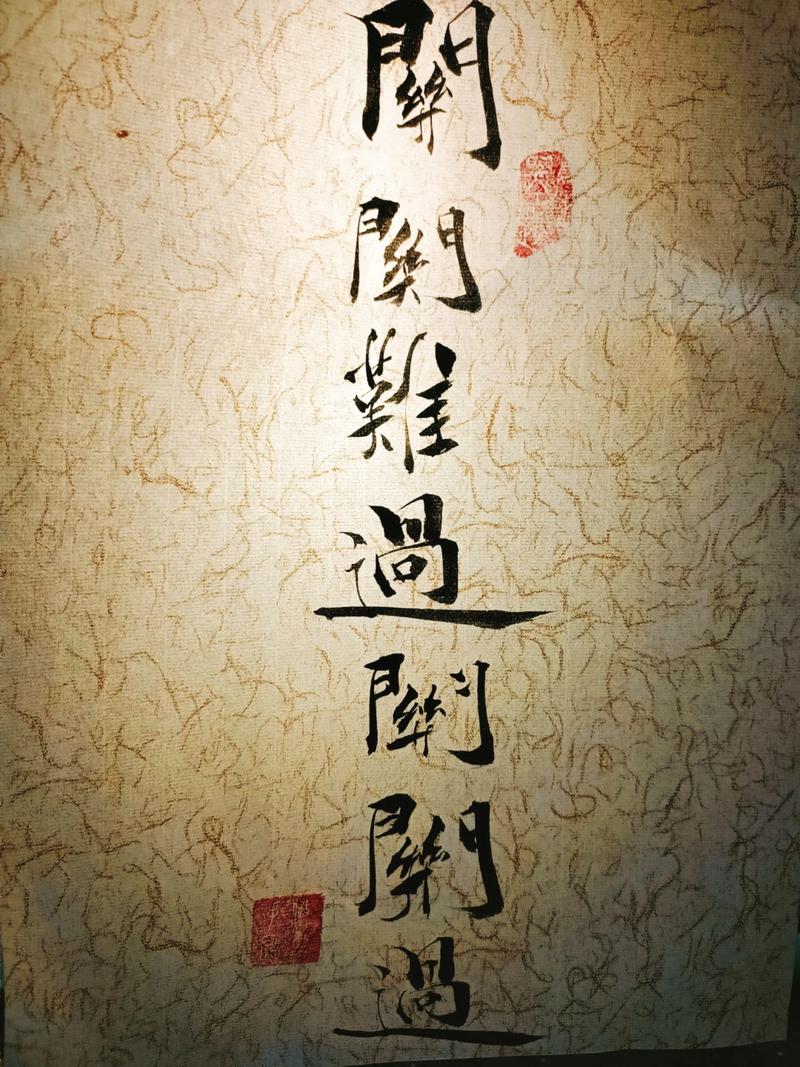 關關難過關關過